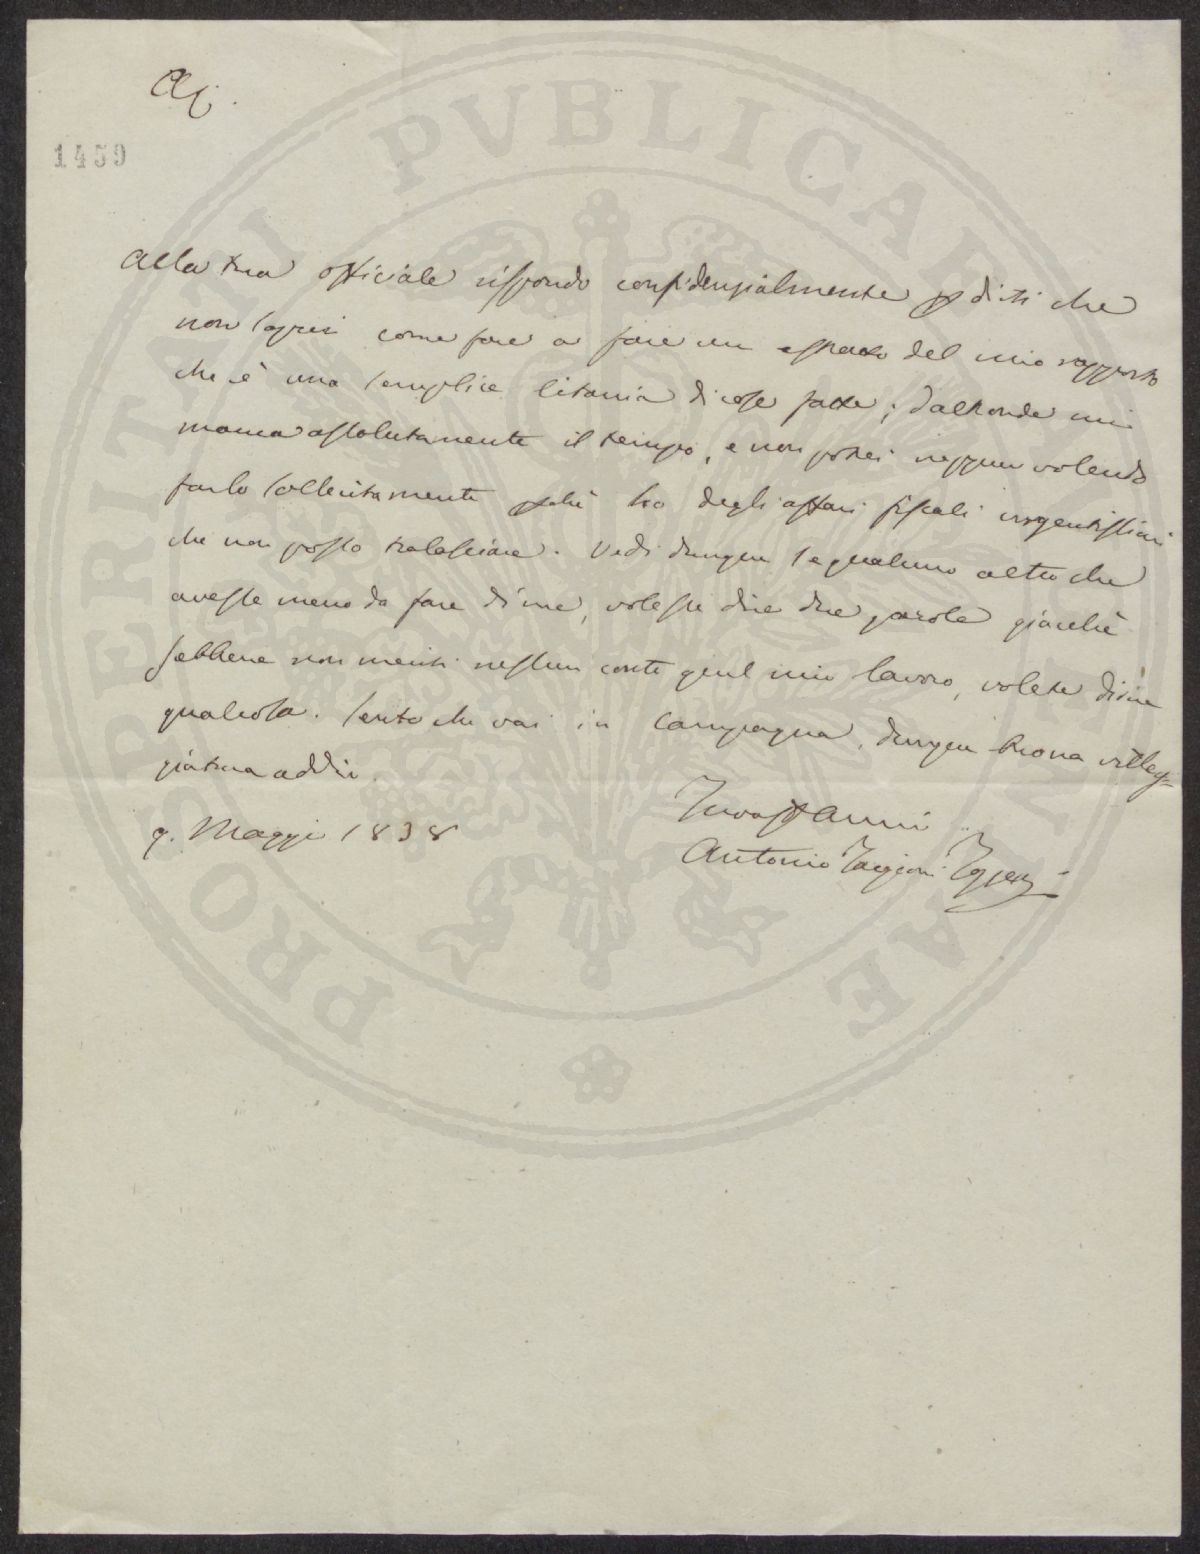 AC.
1459
Alla tua officiale rispondo confidenzialmente p dirti che
non saprei come fare a fare un estratto del mio rapporto
che è una semplice litania di cose fatte; d'altronde mi
manca assolutamente il tempo, e non potrei neppur volendo
farlo sollecitamente pchè ho degli affari fiscali urgentissimi
che non posso tralasciare. Vedi dunque se qualcuno altro che
avesse meno da fare di me, volesse dire due parole giacchè
sebbene non meriti nessun conto quel mio lavoro, volete dirne
qualcosa. Sento che vai in campagna, dunque buona villeg=
giatura addio.
9. Maggio 1838
Antonio Targioni Tozzetti
PROSPERITATI PVBLICAE AVGENDAE